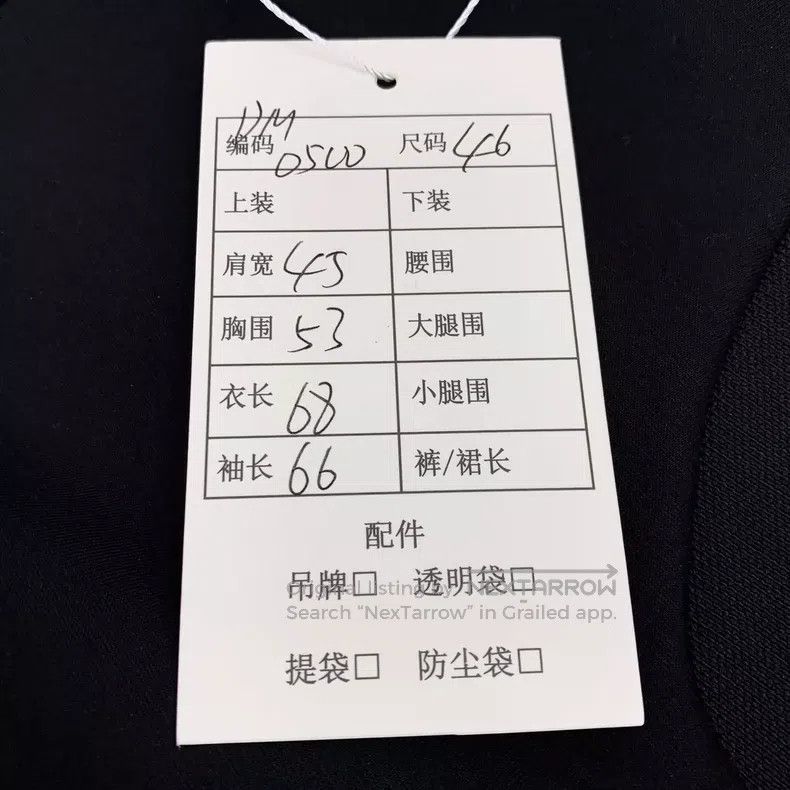 编码 DM 0500 尺码 46
上装 下装
肩宽 45 腰围
胸围 53 大腿围
衣长 68 小腿围
袖长 66 裤/裙长
配件
吊牌□ 透明袋□
Original listing by NEXTARROW
Search “NexTarrow” in Grailed app.
提袋□ 防尘袋□